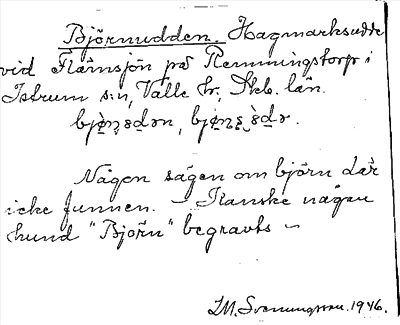 Björnudden. Hagmarksudde
vid Flämsjön på Remmingstorp i
Istrum s:n, Valle hr, Skb. län.
Någon sägen om björn där
icke funnen. Kanske någon
hund "Björn" begravts
I.M. Svenungsson. 1946.